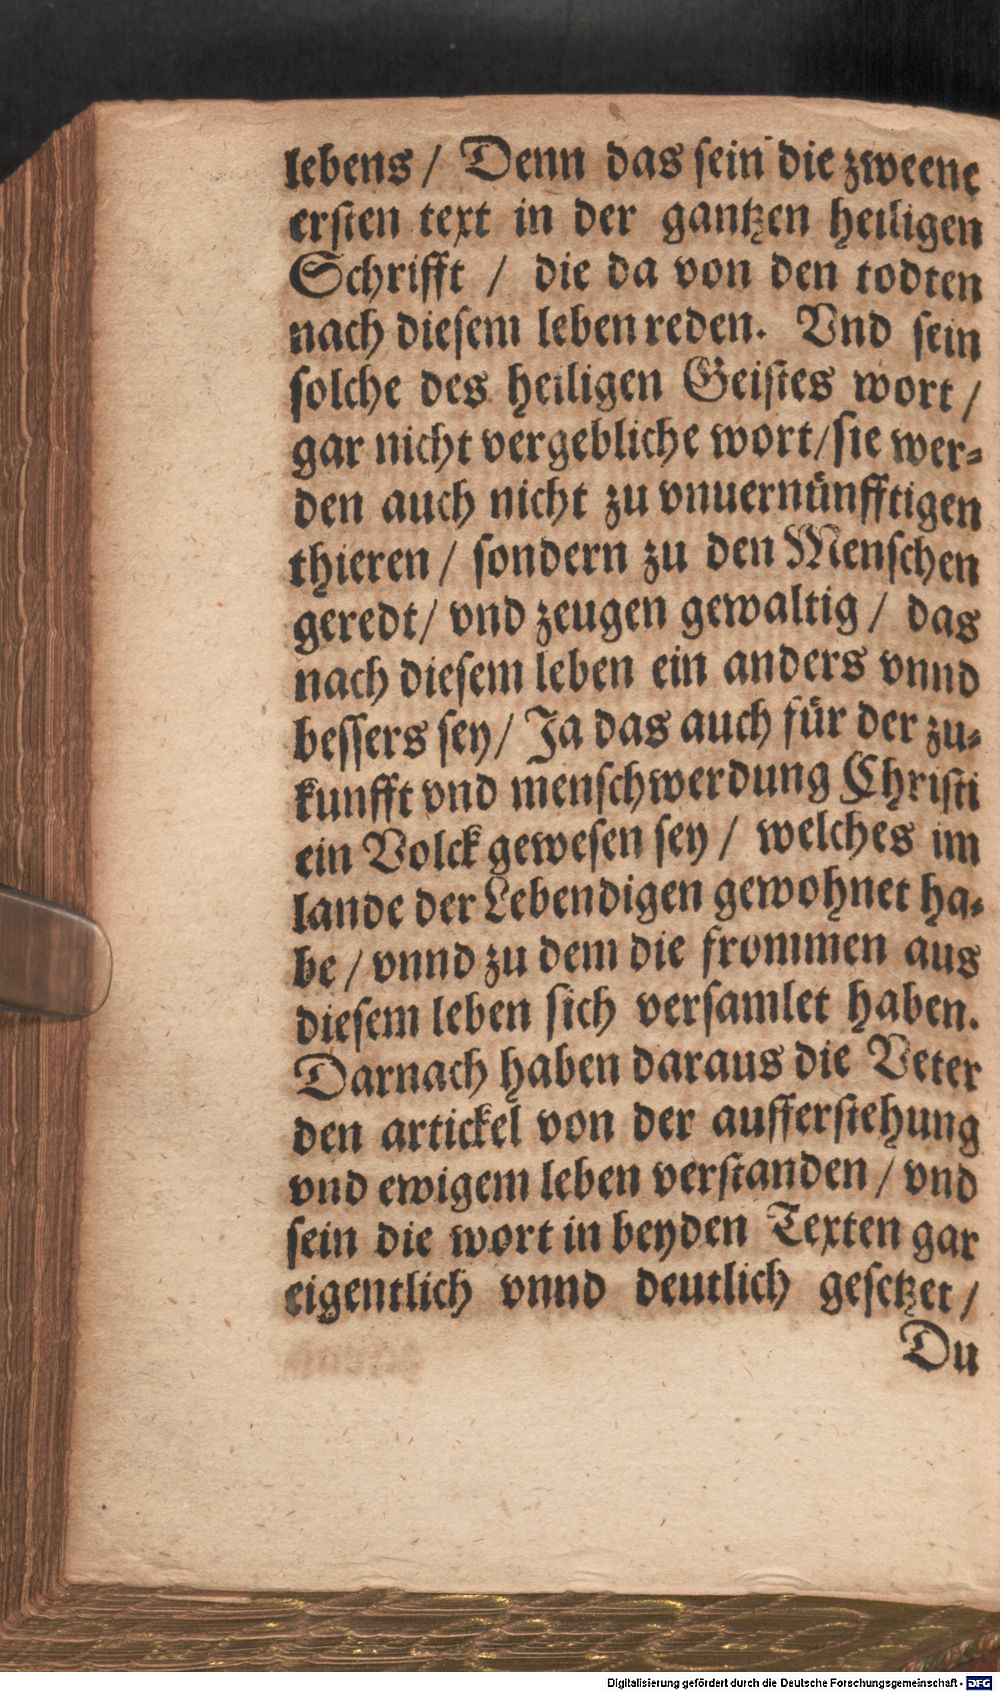 lebens / Denn das sein die zweene
ersten text in der gantzen heiligen
Schrifft / die da von den todten
nach diesem leben reden. Vnd sein
solche des heiligen Geistes wort /
gar nicht vergebliche wort/sie wer-
den auch nicht zu vnuernünfftigen
thieren / sondern zu den Menschen
geredt/ vnd zeugen gewaltig / das
nach diesem leben ein anders vnnd
bessers sey/ Ja das auch für der zu-
kunfft vnd menschwerdung Christi
ein Volck gewesen sey / welches im
lande der Lebendigen gewohnet ha-
be / vnnd zu dem die frommen aus
diesem leben sich versamlet haben.
Darnach haben daraus die Veter
den artickel von der aufferstehung
vnd ewigem leben verstanden / vnd
sein die wort in beyden Texten gar
eigentlich vnnd deutlich gesetzet /
Du
Digitalisierung gefördert durch die Deutsche Forschungsgemeinschaft - DFG